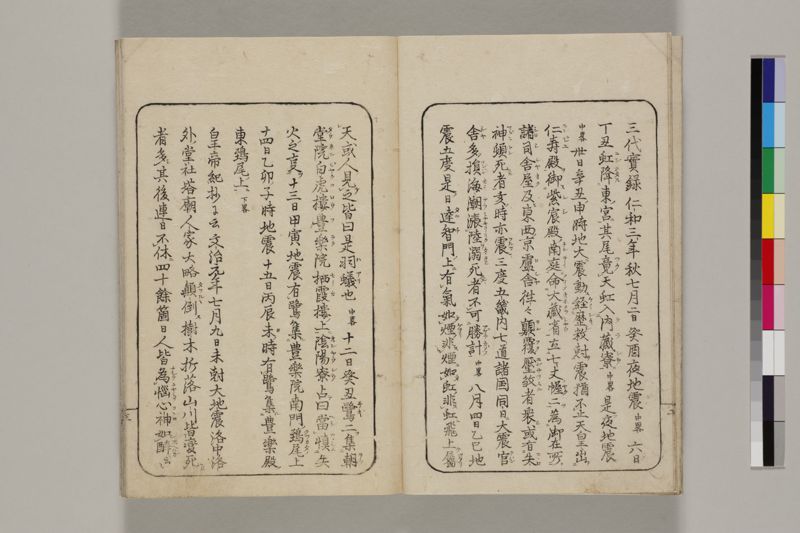 三代實録仁和三年秋七月二日癸酉夜地震 中畧 六日
丁丑虹降東宮其尾竟天虹入内藏寮 中畧 是夜地震
中畧 卅日辛丑申時地大震動経歴数尅震猶不止天皇出
仁寿殿御紫宸殿南庭命大藏省立七丈幄二為御在所
諸司舎屋及東西京廬舎徃々顛覆壓殺者衆或有失
神頓死者亥時亦震三度五畿内七道諸国同日大震官
舎多損海潮漲陸溺死者不可勝計 中畧 八月四日乙巳地
震五度是日達智門上有氣如煙非煙如虹非虹飛上属
天或人見之皆曰是羽蟻也 中畧 十二日癸丑鷺二集朝
堂院白虎樓豊樂院栖霞樓上陰陽寮占曰當慎失
火之㕝十三日甲寅地震有鷺集豊樂院南門鵄尾上
十四日乙卯子時地震十五日丙辰未時有鷺集豊樂殿
東鵄尾上 下畧
皇帝紀抄ニ云文治元年七月九日未尅大地震洛中洛
外堂社塔廟人家大略顛倒樹木折落山川皆変死
者多其後連日不休四十餘箇日人皆為惱心神如酔云々